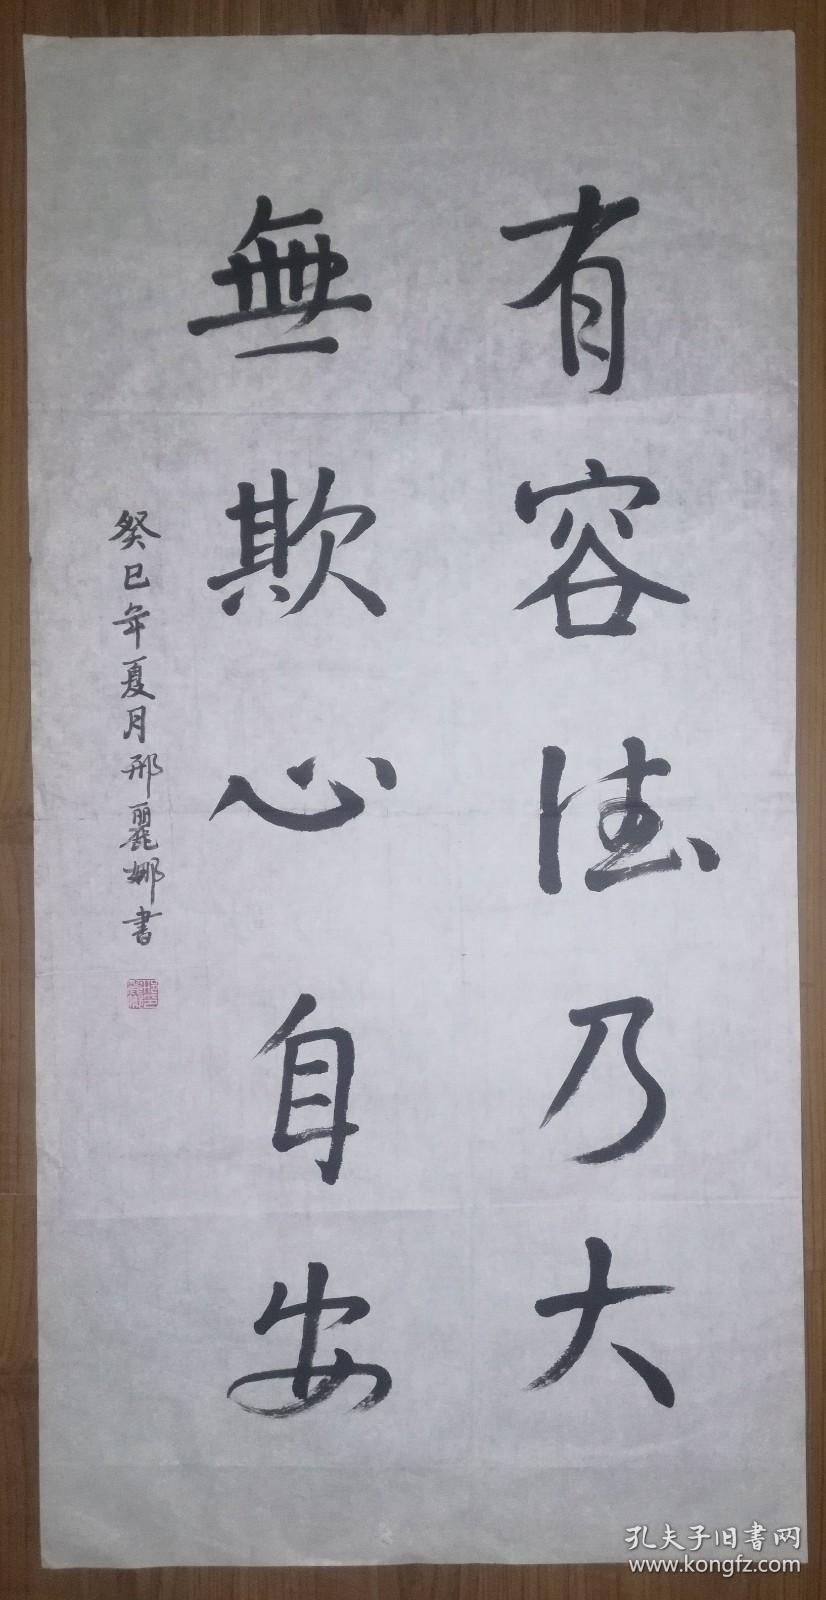 有容德乃大
無欺心自安
癸巳年夏月邢麗娜書
孔夫子旧書网
www.kongfz.com